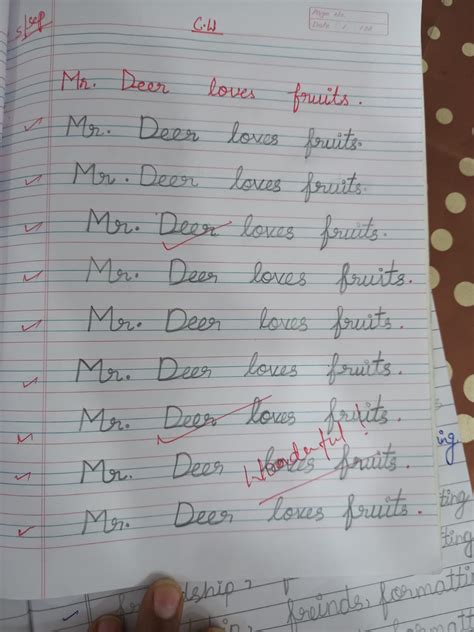 5/sep
C.W
Page No.
Date
Mr. Deer loves fruits.
Mr. Deer loves fruits.
Mr. Deer loves fruits.
Mr. Deer loves fruits.
Mr. Deer loves fruits.
Mr. Deer loves fruits.
Mr. Deer loves fruits.
Mr. Deer loves fruits.
Wonderful!
Mr. Deer loves fruits.
Mr. Deer loves fruits.
ing
ting
ting
dship,
freinds, formatti
ship,
formatt